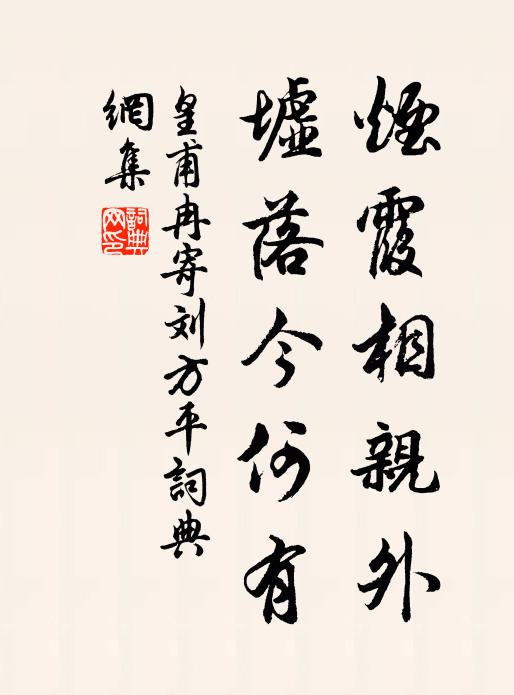 煙霞相親外
墟落今何有
皇甫冉寄刘方平詞典
網集
詞典網印